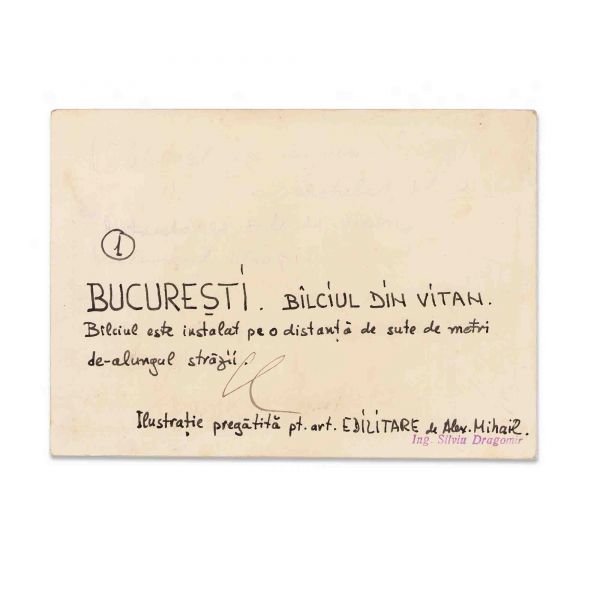 1
BUCUREȘTI. BÎLCIUL DIN VITAN.
Bîlciul este instalat pe o distanță de sute de metri
de-alungul străzii.
Ilustrație pregătită pt. art. EDILITARE de Alex. Mihail.
Ing. Silviu Dragomir